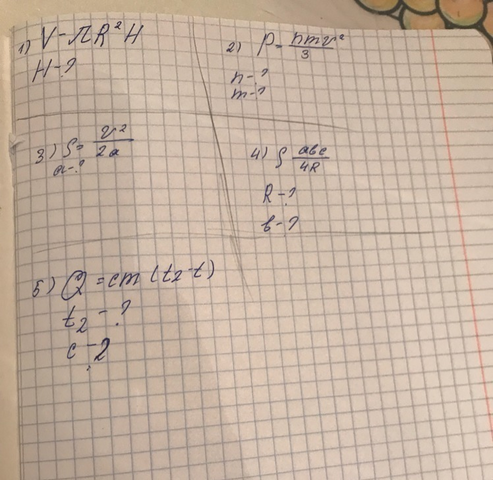 1) V - πR²H
H - ?
2) P = nmv²/3
n - ?
m - ?
3) S = v²/2a
a - ?
4) S abc/4R
R - ?
b - ?
5) Q = cm (t₂ - t)
t₂ - ?
c - ?